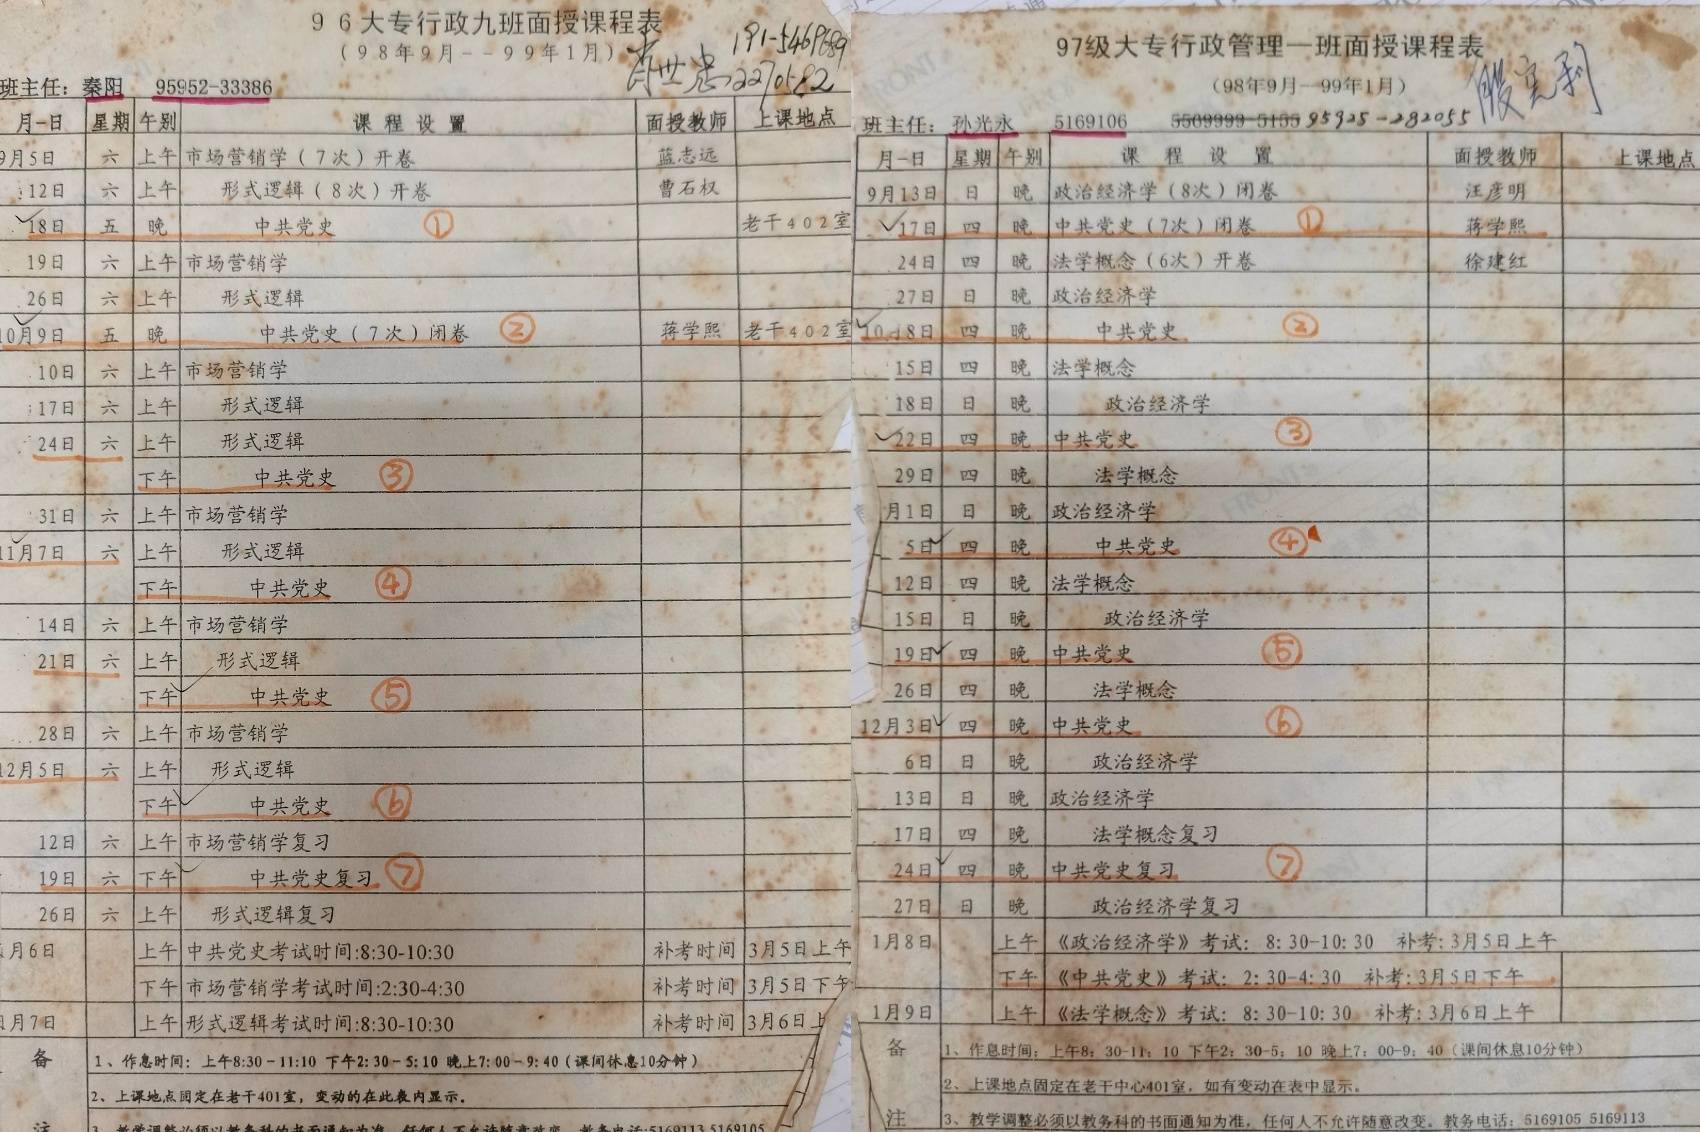 96大专行政九班面授课程表
(98年9月--99年1月)
191-5469689
2270582
班主任：秦阳 95952-33386
月-日 星期 午别 课程设置 面授教师 上课地点
9月5日 六 上午 市场营销学（7次）开卷 蓝志远
12日 六 上午 形式逻辑（8次）开卷 曹石权
18日 五 晚 中共党史 ① 老干402室
19日 六 上午 市场营销学
26日 六 上午 形式逻辑
10月9日 五 晚 中共党史（7次）闭卷 ② 蒋学熙 老干402室
10日 六 上午 市场营销学
17日 六 上午 形式逻辑
24日 六 上午 形式逻辑
下午 中共党史 ③
31日 六 上午 市场营销学
11月7日 六 上午 形式逻辑
下午 中共党史 ④
14日 六 上午 市场营销学
21日 六 上午 形式逻辑
下午 中共党史 ⑤
28日 六 上午 市场营销学
12月5日 六 上午 形式逻辑
下午 中共党史 ⑥
12日 六 上午 市场营销学复习
19日 六 下午 中共党史复习 ⑦
26日 六 上午 形式逻辑复习
月6日 上午 中共党史考试时间:8:30-10:30 补考时间 3月5日上午
下午 市场营销学考试时间:2:30-4:30 补考时间 3月5日下午
月7日 上午 形式逻辑考试时间:8:30-10:30 补考时间 3月6日上
备注
1、作息时间：上午8:30-11:10 下午2:30-5:10 晚上7:00-9:40（课间休息10分钟）
2、上课地点固定在老干401室，变动的在此表内显示。
3、教学调整必须以教务科的书面通知为准，任何人不允许随意改变。教务电话:5169113 5169105
97级大专行政管理一班面授课程表
（98年9月—99年1月）
班主任：孙光永 5169106 5509999-5155 95925-282055
月-日 星期 午别 课程设置 面授教师 上课地点
9月13日 日 晚 政治经济学（8次）闭卷 汪彦明
17日 四 晚 中共党史（7次）闭卷 ① 蒋学熙
24日 四 晚 法学概念（6次）开卷 徐建红
27日 日 晚 政治经济学
10月8日 四 晚 中共党史 ②
15日 四 晚 法学概念
18日 日 晚 政治经济学
22日 四 晚 中共党史 ③
29日 四 晚 法学概念
月1日 日 晚 政治经济学
5日 四 晚 中共党史 ④
12日 四 晚 法学概念
15日 日 晚 政治经济学
19日 四 晚 中共党史 ⑤
26日 四 晚 法学概念
12月3日 四 晚 中共党史 ⑥
6日 日 晚 政治经济学
13日 日 晚 政治经济学
17日 四 晚 法学概念复习
24日 四 晚 中共党史复习 ⑦
27日 日 晚 政治经济学复习
1月8日 上午 《政治经济学》考试：8：30-10：30 补考：3月5日上午
下午 《中共党史》考试：2：30-4：30 补考：3月5日下午
1月9日 上午 《法学概念》考试：8：30-10：30 补考：3月6日上午
备注
1、作息时间：上午8：30-11：10 下午2：30-5：10 晚上7：00-9：40（课间休息10分钟）
2、上课地点固定在老干中心401室，如有变动在表中显示。
3、教学调整必须以教务科的书面通知为准，任何人不允许随意改变。教务电话：5169105 5169113